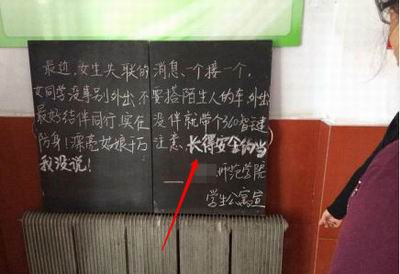 最近,女生失联的消息,一个接一个,
女同学没事别外出,不要搭陌生人的车,外出
最好结伴同行,实在没伴就带个360智键
防身!漂亮姑娘千万注意,长得安全的当
我没说!
师范学院
学生公寓宣